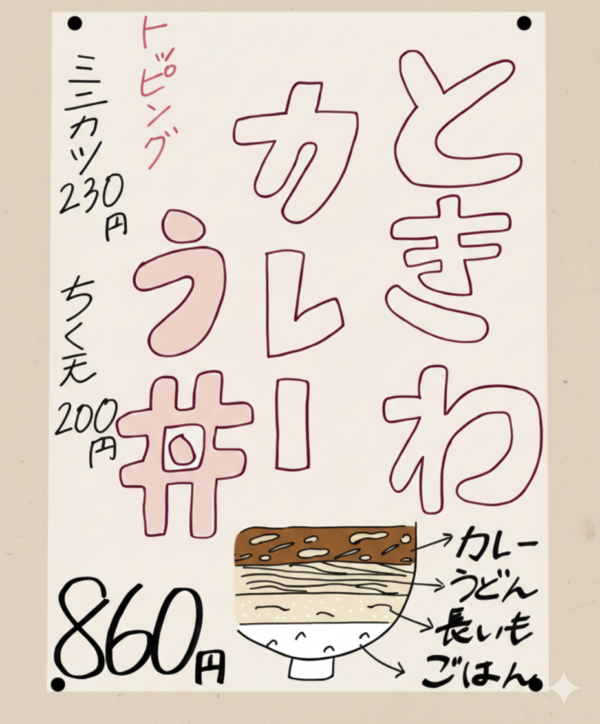 ときわ
カレー
う丼
トッピング
ミニカツ
230円
ちく天
200円
860円
カレー
うどん
長いも
ごはん